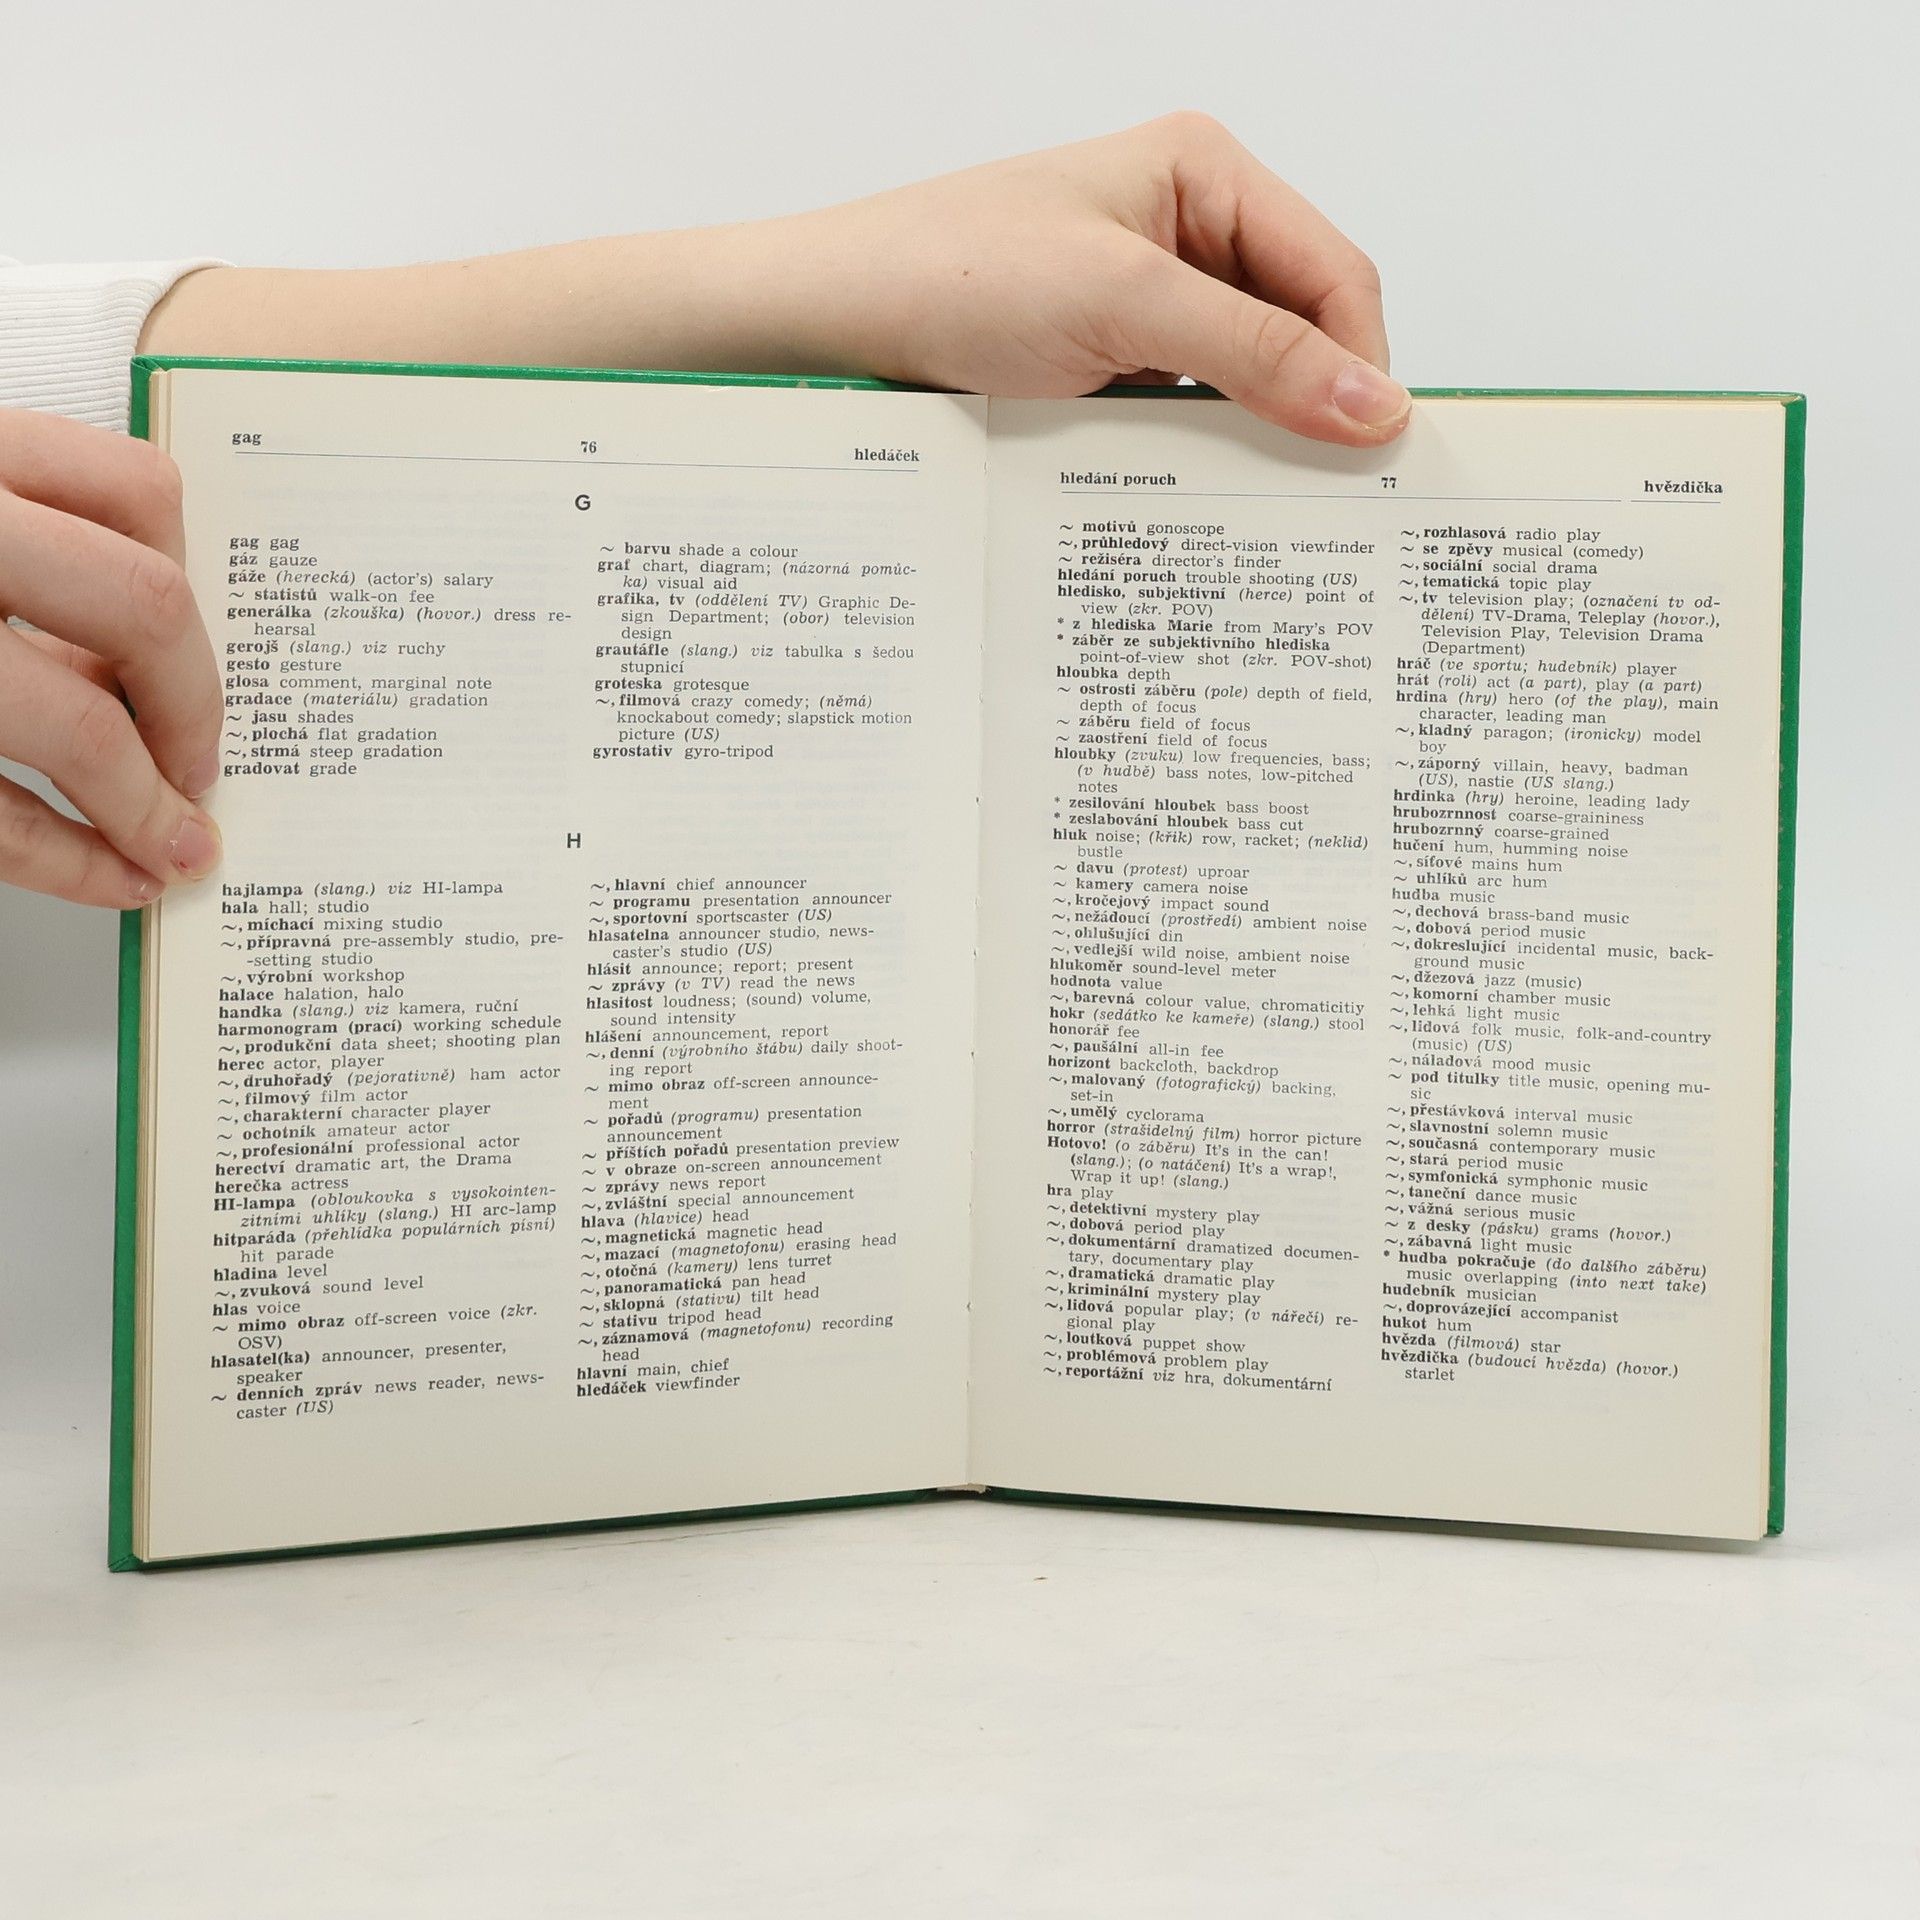 gag
76
hledáček
G
gag gag
gáz gauze
gáže (herecká) (actor's) salary
~ statistů walk-on fee
generálka (zkouška) (hovor.) dress re-
hearsal
gerojš (slang.) viz ruchy
gesto gesture
glosa comment, marginal note
gradace (materiálu) gradation
~ jasu shades
~, plochá flat gradation
~, strmá steep gradation
gradovat grade
~ barvu shade a colour
graf chart, diagram; (názorná pomůc-
ka) visual aid
grafika, tv (oddělení TV) Graphic De-
sign Department; (obor) television
design
grautáfle (slang.) viz tabulka s šedou
stupnicí
groteska grotesque
~, filmová crazy comedy; (němá)
knockabout comedy; slapstick motion
picture (US)
gyrostativ gyro-tripod
H
hajlampa (slang.) viz HI-lampa
hala hall; studio
~, míchací mixing studio
~, přípravná pre-assembly studio, pre-
-setting studio
~, výrobní workshop
halace halation, halo
handka (slang.) viz kamera, ruční
harmonogram (prací) working schedule
~, produkční data sheet; shooting plan
herec actor, player
~, druhořadý (pejorativně) ham actor
~, filmový film actor
~, charakterní character player
~ ochotník amateur actor
~, profesionální professional actor
herectví dramatic art, the Drama
herečka actress
HI-lampa (obloukovka s vysokointen-
zitními uhlíky (slang.) HI arc-lamp
hitparáda (přehlídka populárních písní)
hit parade
hladina level
~, zvuková sound level
hlas voice
~ mimo obraz off-screen voice (zkr.
OSV)
hlasatel(ka) announcer, presenter,
speaker
~ denních zpráv news reader, news-
caster (US)
~, hlavní chief announcer
~ programu presentation announcer
~, sportovní sportscaster (US)
hlasatelna announcer studio, news-
caster's studio (US)
hlásit announce; report; present
~ zprávy (v TV) read the news
hlasitost loudness; (sound) volume,
sound intensity
hlášení announcement, report
~, denní (výrobního štábu) daily shoot-
ing report
~ mimo obraz off-screen announce-
ment
~ pořadů (programu) presentation
announcement
~ příštích pořadů presentation preview
~ v obraze on-screen announcement
~ zprávy news report
~, zvláštní special announcement
hlava (hlavice) head
~, magnetická magnetic head
~, mazací (magnetofonu) erasing head
~, otočná (kamery) lens turret
~, panoramatická pan head
~, sklopná (stativu) tilt head
~ stativu tripod head
~, záznamová (magnetofonu) recording
head
hlavní main, chief
hledáček viewfinder
hledání poruch
77
hvězdička
~ motivů gonoscope
~, průhledový direct-vision viewfinder
~ režiséra director's finder
hledání poruch trouble shooting (US)
hledisko, subjektivní (herce) point of
view (zkr. POV)
* z hlediska Marie from Mary's POV
* záběr ze subjektivního hlediska
point-of-view shot (zkr. POV-shot)
hloubka depth
~ ostrosti záběru (pole) depth of field,
depth of focus
~ záběru field of focus
~ zaostření field of focus
hloubky (zvuku) low frequencies, bass;
(v hudbě) bass notes, low-pitched
notes
* zesilování hloubek bass boost
* zeslabování hloubek bass cut
hluk noise; (křik) row, racket; (neklid)
bustle
~ davu (protest) uproar
~ kamery camera noise
~, kročejový impact sound
~, nežádoucí (prostředí) ambient noise
~, ohlušující din
~, vedlejší wild noise, ambient noise
hlukoměr sound-level meter
hodnota value
~, barevná colour value, chromaticitiy
hokr (sedátko ke kameře) (slang.) stool
honorář fee
~, paušální all-in fee
horizont backcloth, backdrop
~, malovaný (fotografický) backing,
set-in
~, umělý cyclorama
horror (strašidelný film) horror picture
Hotovo! (o záběru) It's in the can!
(slang.); (o natáčení) It's a wrap!,
Wrap it up! (slang.)
hra play
~, detektivní mystery play
~, dobová period play
~, dokumentární dramatized documen-
tary, documentary play
~, dramatická dramatic play
~, kriminální mystery play
~, lidová popular play; (v nářečí) re-
gional play
~, loutková puppet show
~, problémová problem play
~, reportážní viz hra, dokumentární
~, rozhlasová radio play
~ se zpěvy musical (comedy)
~, sociální social drama
~, tematická topic play
~, tv television play; (označení tv od-
dělení) TV-Drama, Teleplay (hovor.),
Television Play, Television Drama
(Department)
hráč (ve sportu; hudebník) player
hrát (roli) act (a part), play (a part)
hrdina (hry) hero (of the play), main
character, leading man
~, kladný paragon; (ironicky) model
boy
~, záporný villain, heavy, badman
(US), nastie (US slang.)
hrdinka (hry) heroine, leading lady
hrubozrnnost coarse-graininess
hrubozrnný coarse-grained
hučení hum, humming noise
~, síťové mains hum
~ uhlíků arc hum
hudba music
~, dechová brass-band music
~, dobová period music
~, dokreslující incidental music, back-
ground music
~, džezová jazz (music)
~, komorní chamber music
~, lehká light music
~, lidová folk music, folk-and-country
(music) (US)
~, náladová mood music
~ pod titulky title music, opening mu-
sic
~, přestávková interval music
~, slavnostní solemn music
~, současná contemporary music
~, stará period music
~, symfonická symphonic music
~, taneční dance music
~, vážná serious music
~ z desky (pásku) grams (hovor.)
~, zábavná light music
* hudba pokračuje (do dalšího záběru)
music overlapping (into next take)
hudebník musician
~, doprovázející accompanist
hukot hum
hvězda (filmová) star
hvězdička (budoucí hvězda) (hovor.)
starlet